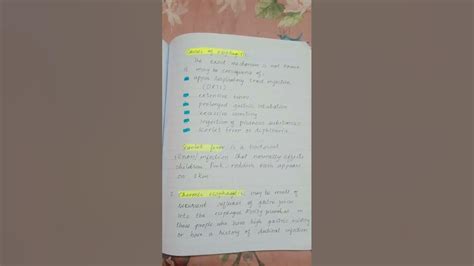 Causes of esophagitis
The exact mechanism is not known
It may be consequence of.
upper respiratory tract infection
(URTI)
extensive burns
prolonged gastric intubation
excessive vomiting
ingestion of poisonous substances
scarlet fever or diphtheria.
Scarlet fever is a bacterial
illness/infection that normally affects
children. Pink reddish rash appears
on skin.
Chronic esophagitis may be result of
recurrent refluxes of gastric juice
into the esophagus
those people who have high gastric acidity
or have a history of duodenal